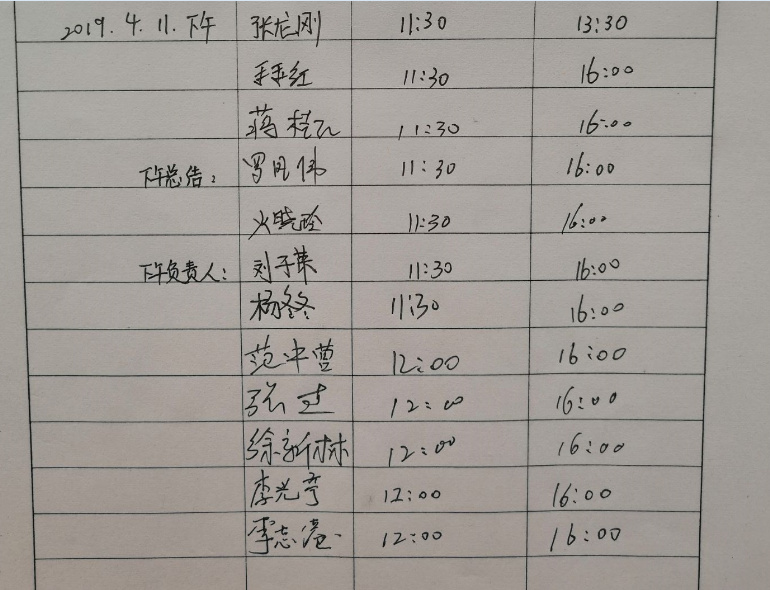 2019.4.11.下午 张龙刚 11:30 13:30
红 11:30 16:00
蒋桂 11:30 16:00
下午总告: 罗同伟 11:30 16:00
火晓玲 11:30 16:00
下午负责人: 刘子菜 11:30 16:00
杨冬冬 11:30 16:00
范中曹 12:00 16:00
张 12:00 16:00
徐新林 12:00 16:00
李光亭 12:00 16:00
李志 12:00 16:00